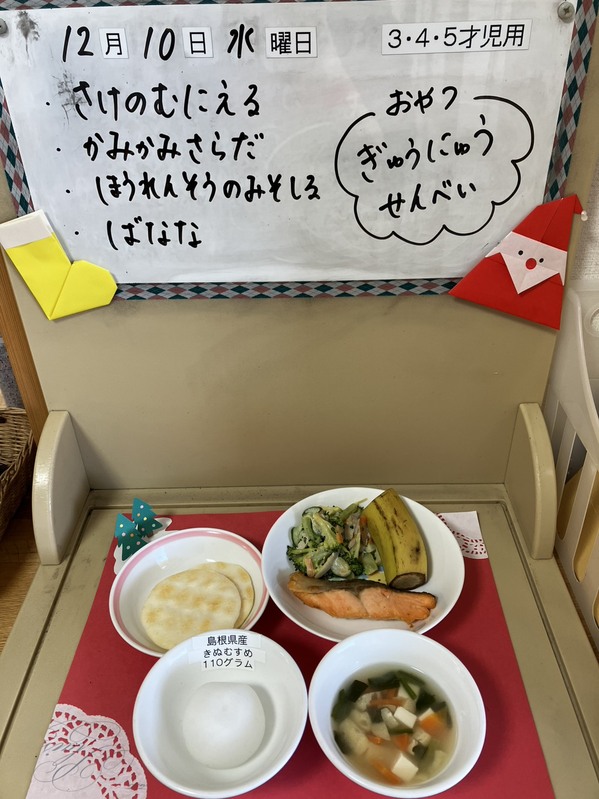 12月10日水曜日
3・4・5才児用
・さけのむにえる
・かみかみさらだ
・ほうれんそうのみそしる
・ばなな
おやつ
ぎゅうにゅう
せんべい
島根県産
きぬむすめ
110グラム